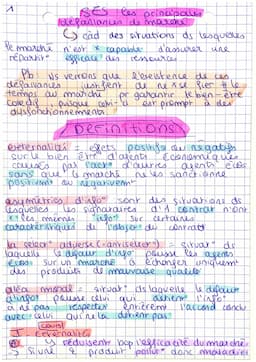 1
SES : les principales
défaillances du marché
↳ càd des situations ds lesquelles
le marché n'est × capable d'assurer une
répartit° efficace des ressources
Pb : ils verrons que l'existence de ces
défaillances justifient de ne × se fier
au marché pr garantir le bien-être
collectif puisque celui-ci est prompt à des
dysfonctionnements
Définitions
externalités = effets positifs ou négatifs
sur le bien être d'agents économiques
causés par l'act° d'autres agents écos
sans que le marché ne les sanctionne
positivmt ou négativemt
asymétries d'info° sont des situations ds
lesquelles les signataires d'1 contrat n'ont
× les mêmes info° sur certaines
caractéristiques de l'objet du contrat
la sélect° adverse (= antisélect°) = situat° ds
laquelle le défaut d'info° pousse les agents
écos sur un marché à échanger uniquemt
des produits de mauvaise qualité
aléa moral = situat° ds laquelle le défaut
d'info° pousse celui qui détient l'info°
à ne pas respecter l'accord conclu
avec celui qui ne la détient pas
Cours
I - Externalité
réduisent bcp l'efficacité du marché
produit